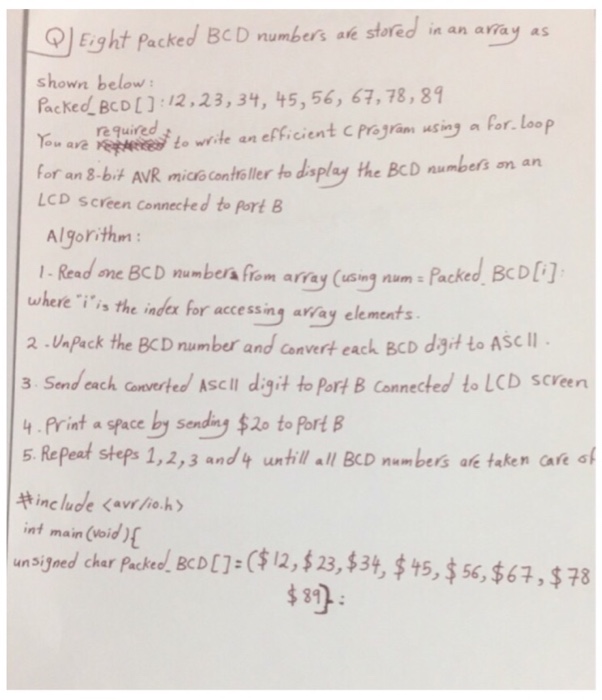 Q] Eight Packed BCD numbers are stored in an array as
shown below:
Packed_BCD[]: 12, 23, 34, 45, 56, 67, 78, 89
You are required to write an efficient C program using a for-loop
for an 8-bit AVR microcontroller to display the BCD numbers on an
LCD screen connected to port B
Algorithm:
1- Read one BCD number from array (using num = Packed_BCD[i]:
where "i" is the index for accessing array elements.
2 - UnPack the BCD number and convert each BCD digit to ASCII.
3. Send each converted ASCII digit to Port B connected to LCD screen
4. Print a space by sending $20 to Port B
5. Repeat steps 1, 2, 3 and 4 untill all BCD numbers are taken care of
#include <avr/io.h>
int main (void){
unsigned char Packed_BCD[]=($12, $23, $34, $45, $56, $67, $78
$89}: